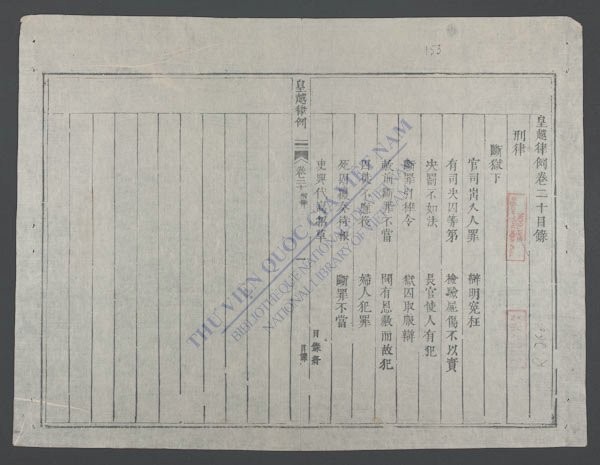 153
皇越律例卷二十目錄
刑律
斷獄下
官司出入人罪 辯明冤枉
有司决囚等第 檢驗屍傷不以實
决罰不如法 長官使人有犯
斷罪引律令 獄囚取服辯
赦前斷罪不當 聞有恩赦而故犯
徒囚不應役 婦人犯罪
死囚覆奏待報 斷罪不當
吏典代寫招草
目錄齊
皇越律例 卷二十 刑律 一 目錄
THƯ VIỆN QUỐC GIA VIỆT NAM
BIBLIOTHÈQUE NATIONALE DU VIETNAM
NATIONAL LIBRARY OF VIETNAM